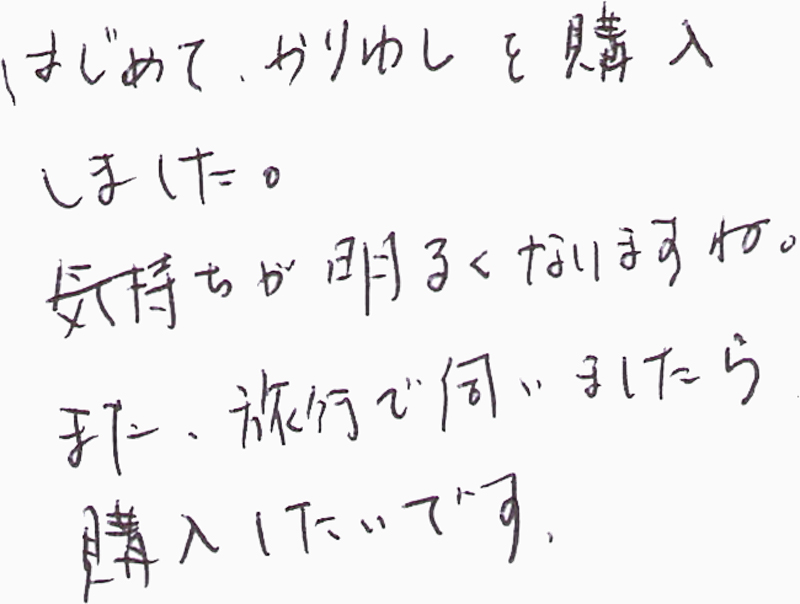 はじめて、かりゆしを購入
しました。
気持ちが明るくなりますね。
また、旅行で伺いましたら
購入したいです。